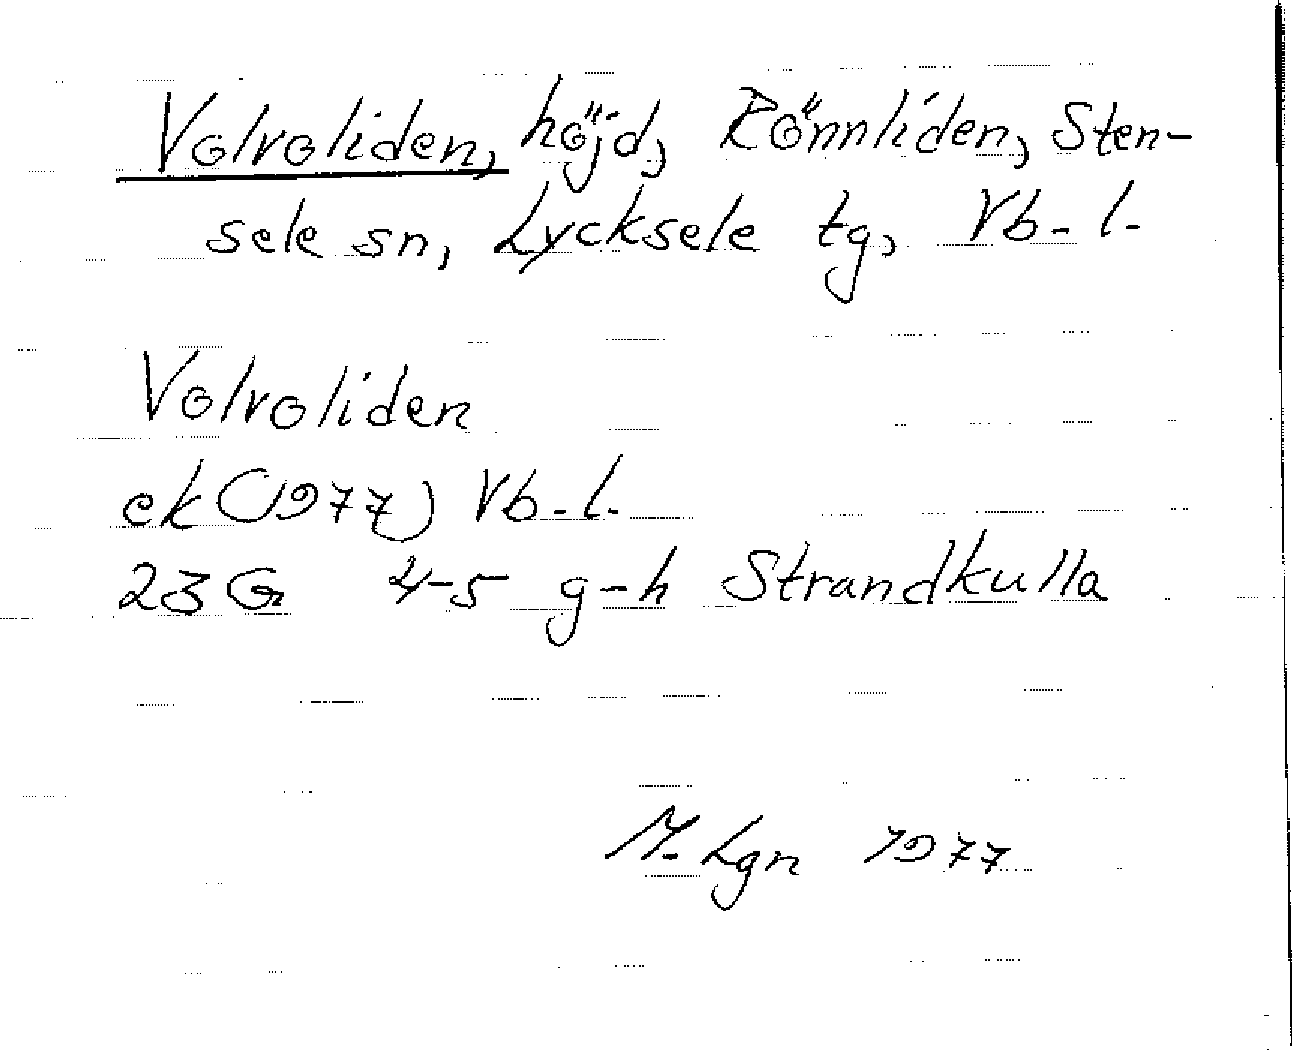 Volvoliden, höjd, Rönnliden, Sten-
sele sn, Lycksele tg, Vb. l.
Volvoliden
ek (1977) Vb. l.
23 G 4-5 g-h Strandkulla
M. Lgn 1977